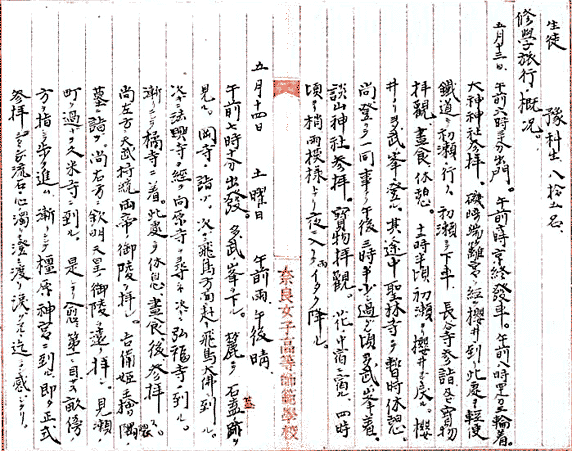 生徒 豫科生 八拾七名
修學旅行ノ概況。
五月十三日。午前六時三十分出門。午前七時京終發車。午前八時三輪着。
大神神社参拝。磯城瑞籬宮ヲ經櫻井ニ到ル此處ヨリ輕便
鐵道ニテ初瀬ニ行ク。初瀬ニ下車。長谷寺参詣及ビ宝物
拝觀。晝食休憩。十一時半頃初瀬ヨリ櫻井ニ戻ル。櫻
井ヨリ多武峯ニ登ル。其途中聖林寺ニテ暫時休憩。
尚登ルヿ一向ニ事ナク午後三時半少シ過ギ頃多武峯着。
談山神社参拝。寳物拝觀。 四時
頃ヨリ稍雨模様トナリ夜ニ入リ雨イタク降ル。
奈良女子高等師範學校
五月十四日 土曜日 午前雨、午後晴
午前七時半出發。多武峯ヲ下ル。麓ノ石蓋跡ヲ
見ル。岡寺ニ詣ヅ。次ニ飛鳥方面ニ赴ク。飛鳥大佛ニ到ル。
次ニ法興寺ヲ經テ向原寺ヲ尋ネ次ニ弘福寺ニ到ル。
漸クニシテ橘寺ニ着。此處ニテ休息晝食後参拝
尚左方天武持統両帝ノ御陵ヲ拝シ。吉備姫ノ
墓ニ詣デ尚右方ニ欽明天皇ノ御陵ヲ遠ク拝シ、見瀬ノ
町ヲ過ギテ久米寺ニ到ル。是ヨリ愈第一ノ目的畝傍
方ヲ指シテ歩ヲ進ム。漸クニシテ橿原神宮ニ到レバ即チ正式
参拝 流石ニ心ノ濁モ澄ミ渡リ